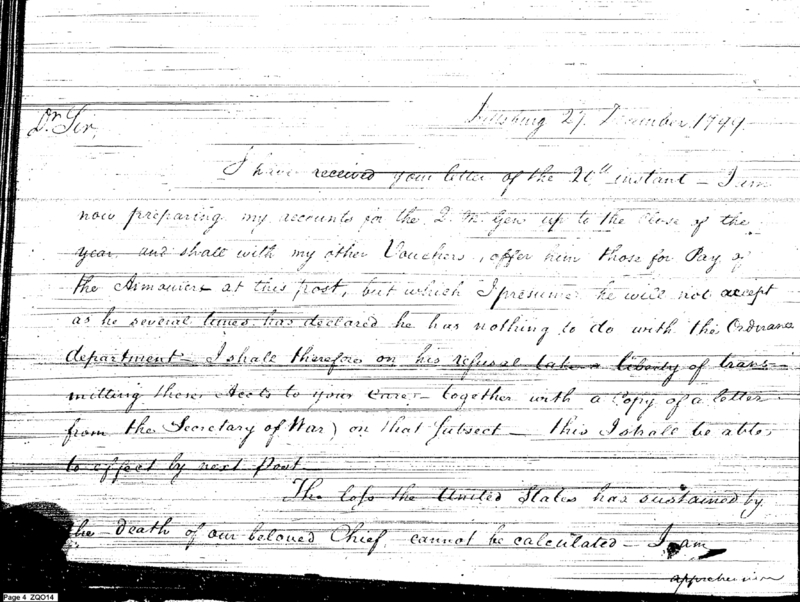 Pittsburg 27. December, 1799.
Dr. Sir,
I have received your letter of the 26th instant – I am
now preparing my accounts for the Q. M. Genl up to the close of the
year and shall with my other Vouchers, offer him those for Pay of
the Armourers at this post, but which I presume he will not accept
as he several times has declared he has nothing to do with the Ordnance
department – I shall therefore on his refusal take liberty of trans-
mitting those Accts to your care – together with a Copy of a letter
from the Secretary of War) on that subject – this I shall be able
to effect by next Post –
The loss the United States has sustained by
the death of our beloved Chief, cannot be calculated – I am
apprehensive
Page 4 ZQO14